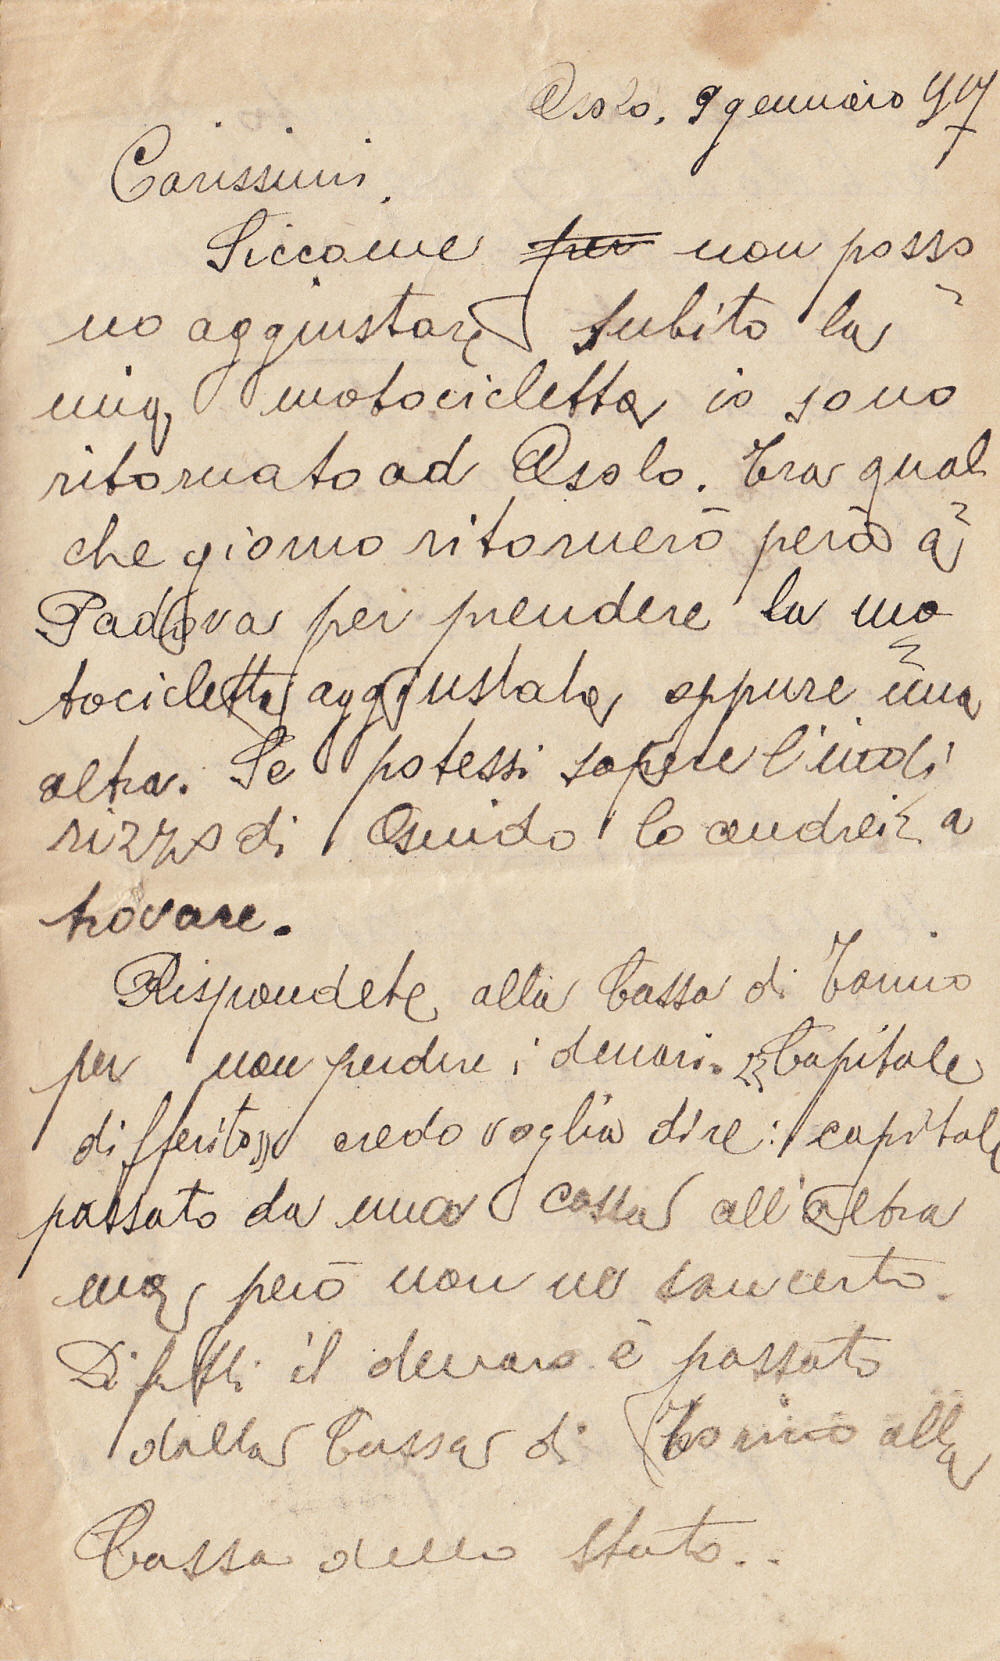 Asolo, 9 gennaio 917
Carissimi,
Siccome per non posso
no aggiustare subito la
mia motocicletta io sono
ritornato ad Asolo. Tra qual
che giorno ritornerò però a
Padova per prendere la mo
tocicletta aggiustata oppure una
altra. Se potessi sapere l'indi
rizzo di Guido lo andrei a
trovare.
Rispondete alla Cassa di Torino
per non perdere i denari. "Capitale
differito" credo voglia dire: capitale
passato da una cassa all'altra
ma però non ne son certo.
Difatti il denaro è passato
dalla Cassa di Torino alla
Cassa dello Stato..